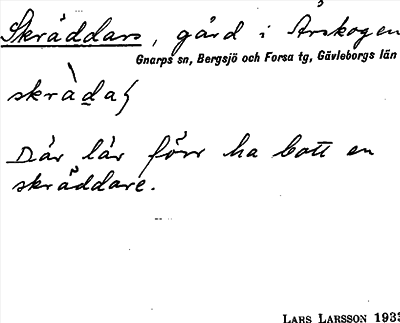 Skräddars, gård i Årskogen
Gnarps sn, Bergsjö och Forsa tg, Gävleborgs län
Där lär förr ha bott en
skräddare.
LARS LARSSON 1933